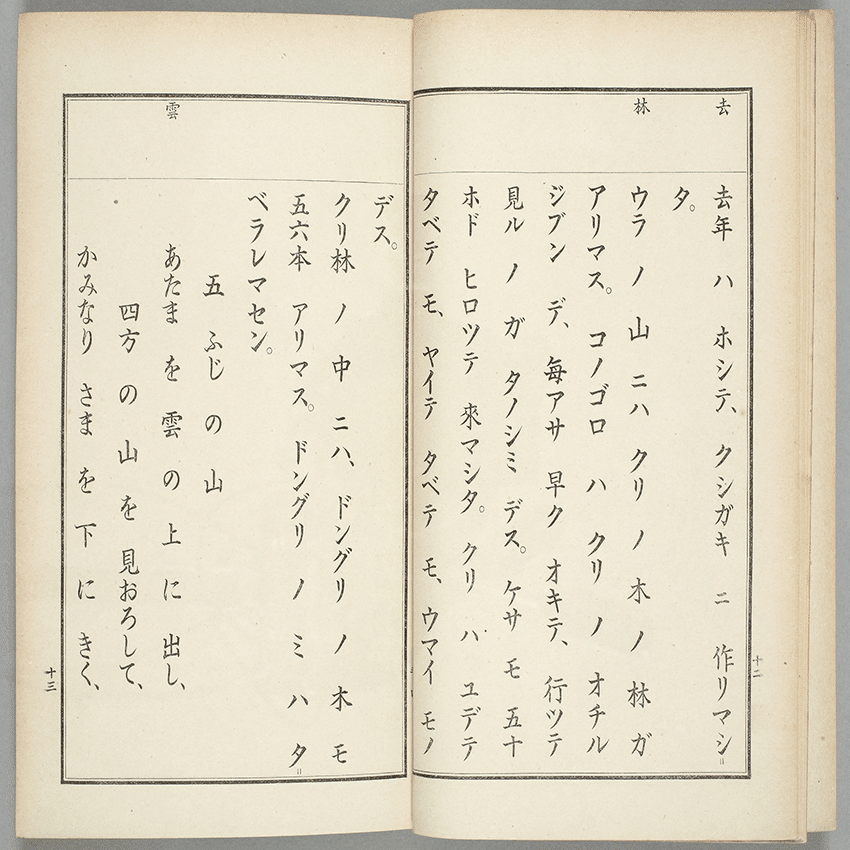 去
林
去年 ハ ホシテ、クシガキ ニ 作リマシ〓
タ。
ウラ ノ 山 ニハ クリ ノ 木 ノ 林 ガ
アリマス。コノゴロ ハ クリ ノ オチル
ジブン デ、毎アサ 早ク オキテ、行ツテ
見ル ノ ガ タノシミ デス。ケサ モ 五十
ホド ヒロツテ 來マシタ。クリ ハ ユデテ
タベテ モ、ヤイテ タベテ モ、ウマイ モノ
十二
雲
デス。
クリ林 ノ 中 ニハ、ドングリ ノ 木 モ
五六本 アリマス。ドングリ ノ ミ ハ タ〓
ベラレマセン。
五 ふじ の 山
あたま を 雲 の 上 に 出し、
四方 の 山 を 見おろして、
かみなり さま を 下 に きく、
十三